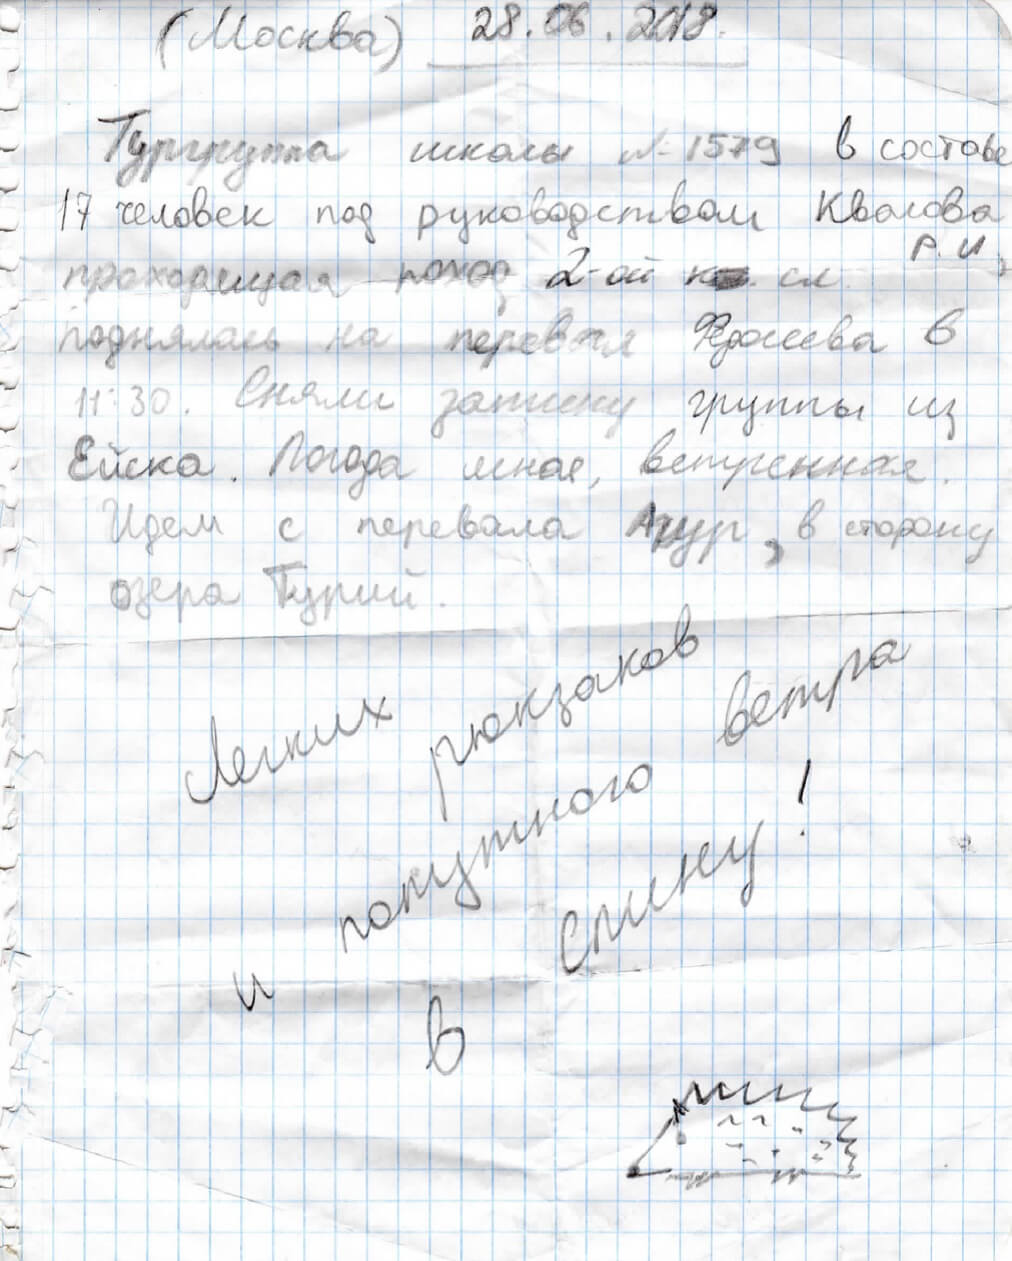 (Москва) 28.06.2018.
Тургруппа школы № 1579 в составе
17 человек под руководством Квалова
Р.И,
проходящая поход 2-ой к. сл.
поднялась на перевал Федосеева в
11:30. Сняли записку группы из
Ейска. Погода ясная, ветренная.
Идем с перевала Ацур, в сторону
озера Турий.
Легких рюкзаков
и попутного ветра
в спину!